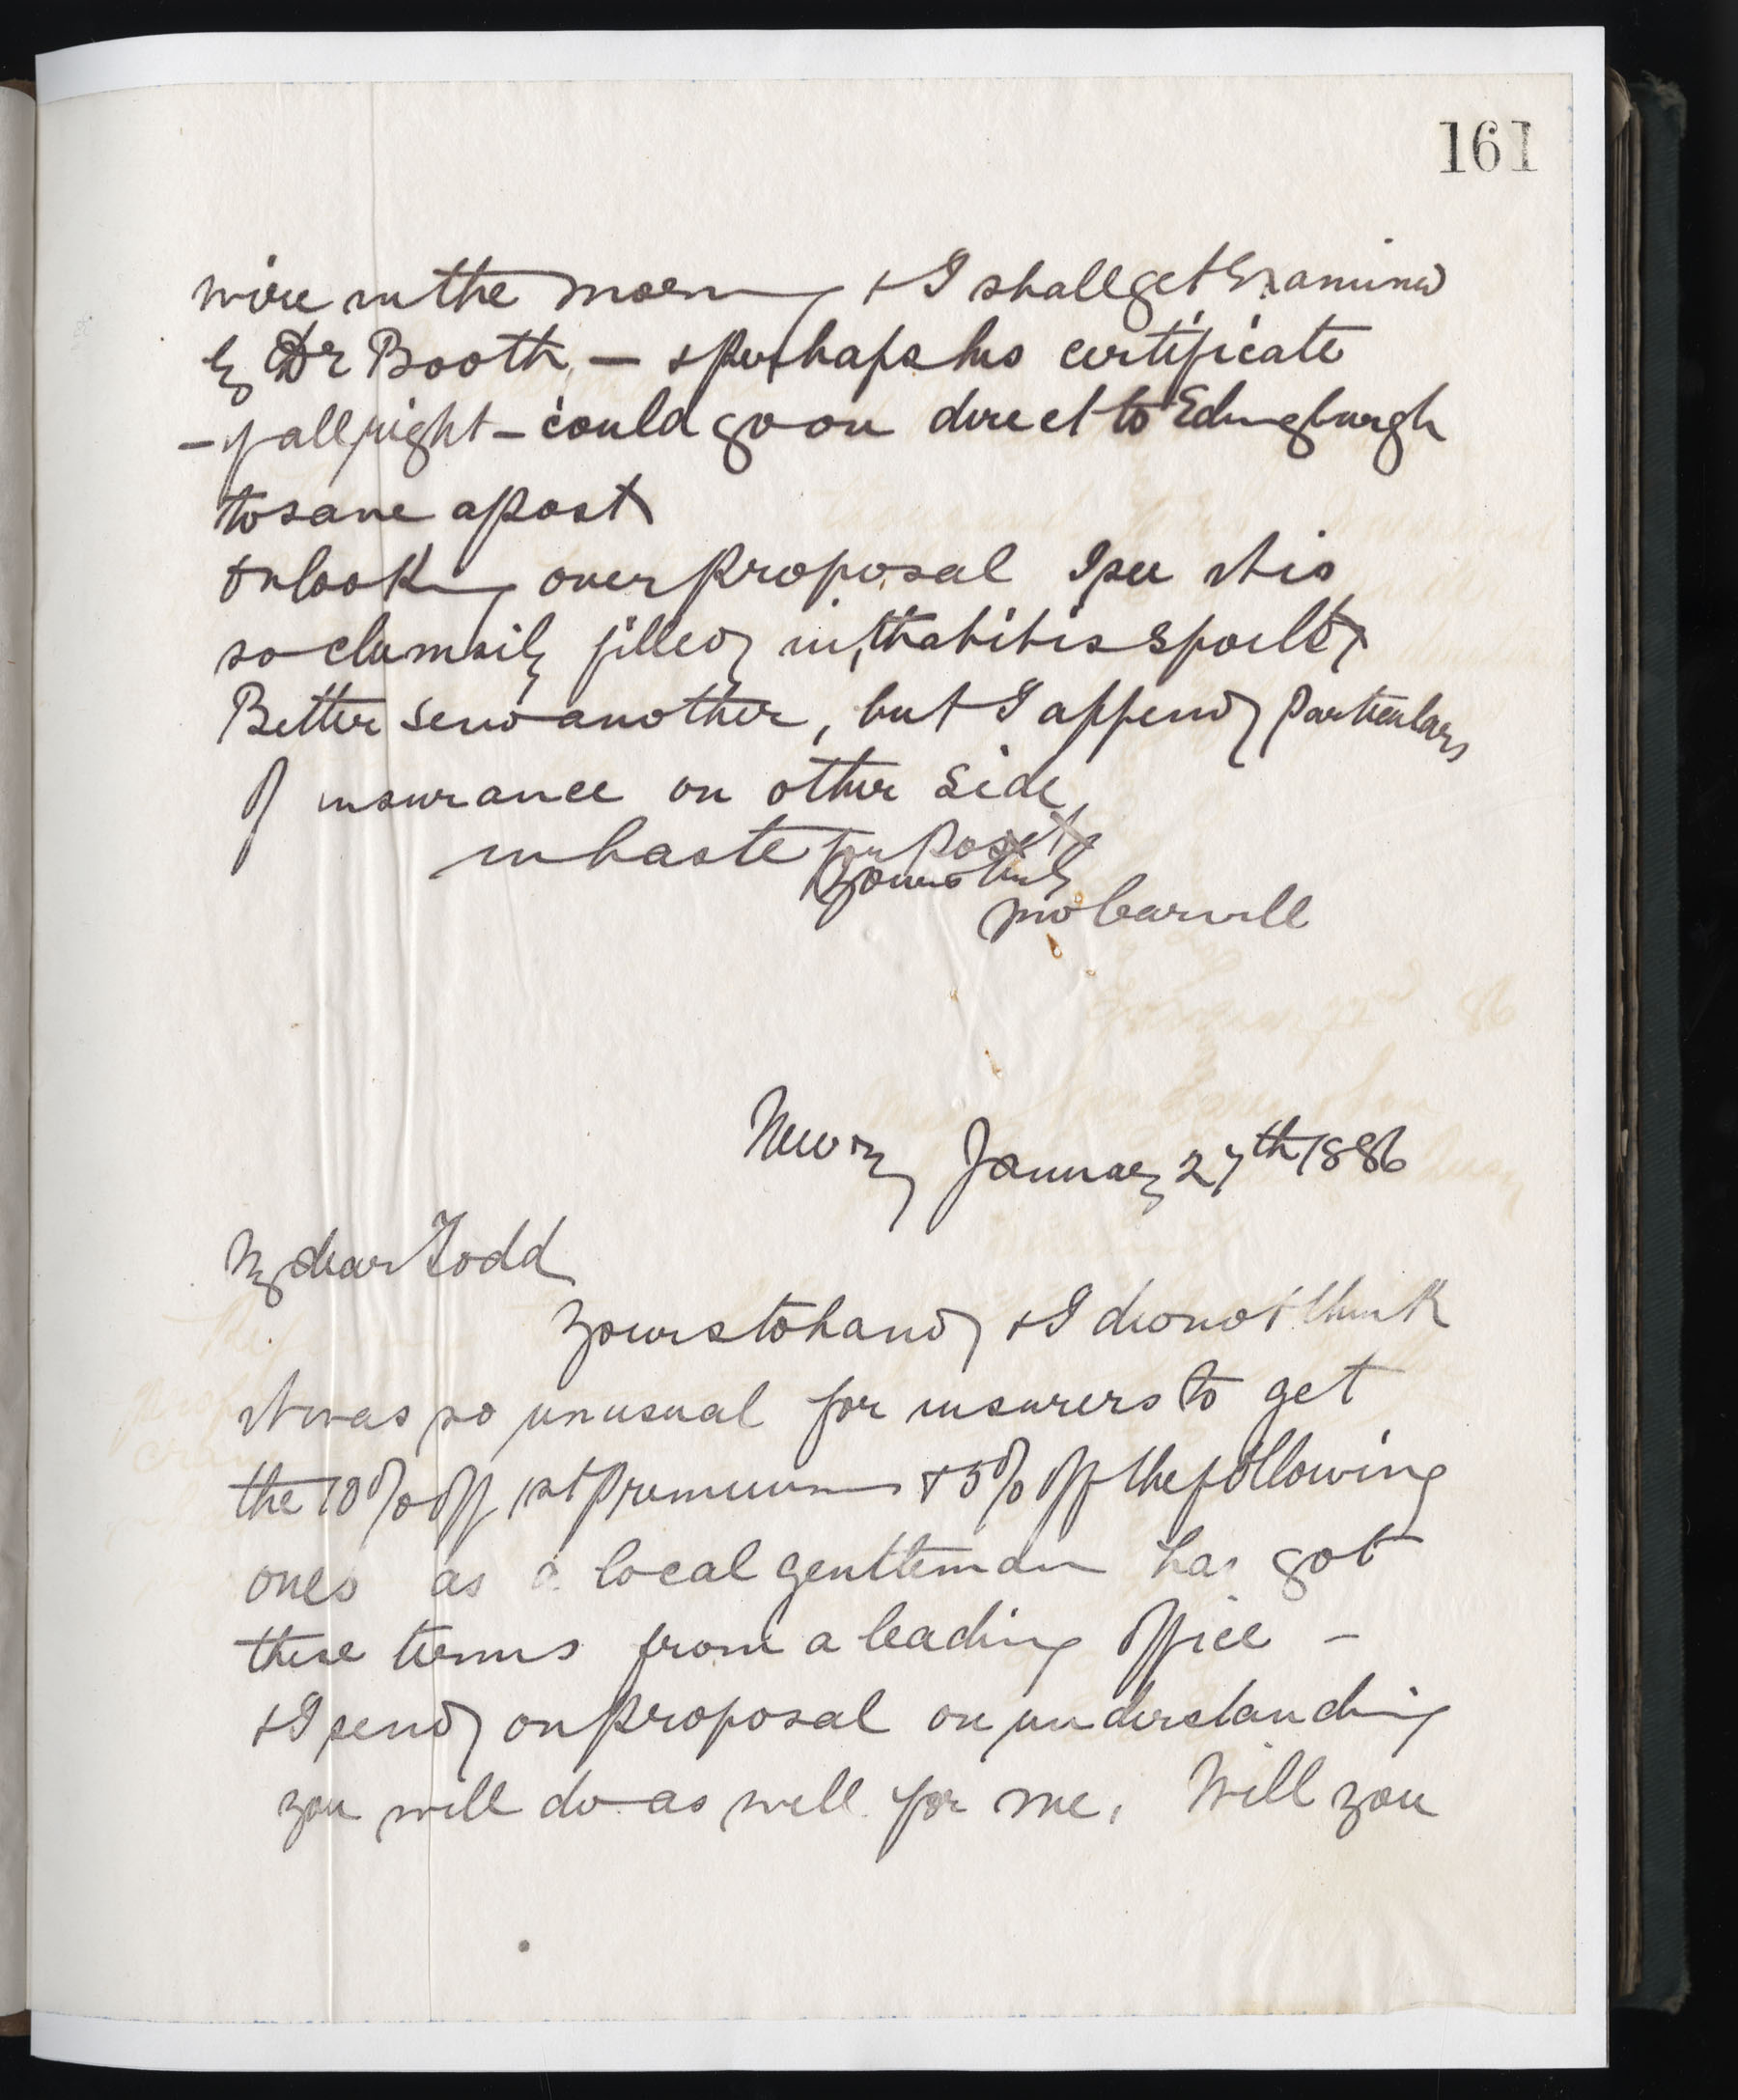 161
wire in the morning & I shall get Examined
by Dr Booth, — & perhaps his certificate
— if all right — could go on direct to Edingburgh
to save a post
On looking over proposal I see it is
so clumsily filled in, that it is spoilt,
Better send another, but I append particulars
of insurance on other side,
in haste for post
yours truly
Jno Carvill
Newry January 27th 1886
My dear Todd
yours to hand & I did not think
it was so unusual for insurers to get
the 10% off 1st premium & 5% off the following
ones as a local gentleman has got
these terms from a leading office —
& I send on proposal on understanding
you will do as well for me. Will you